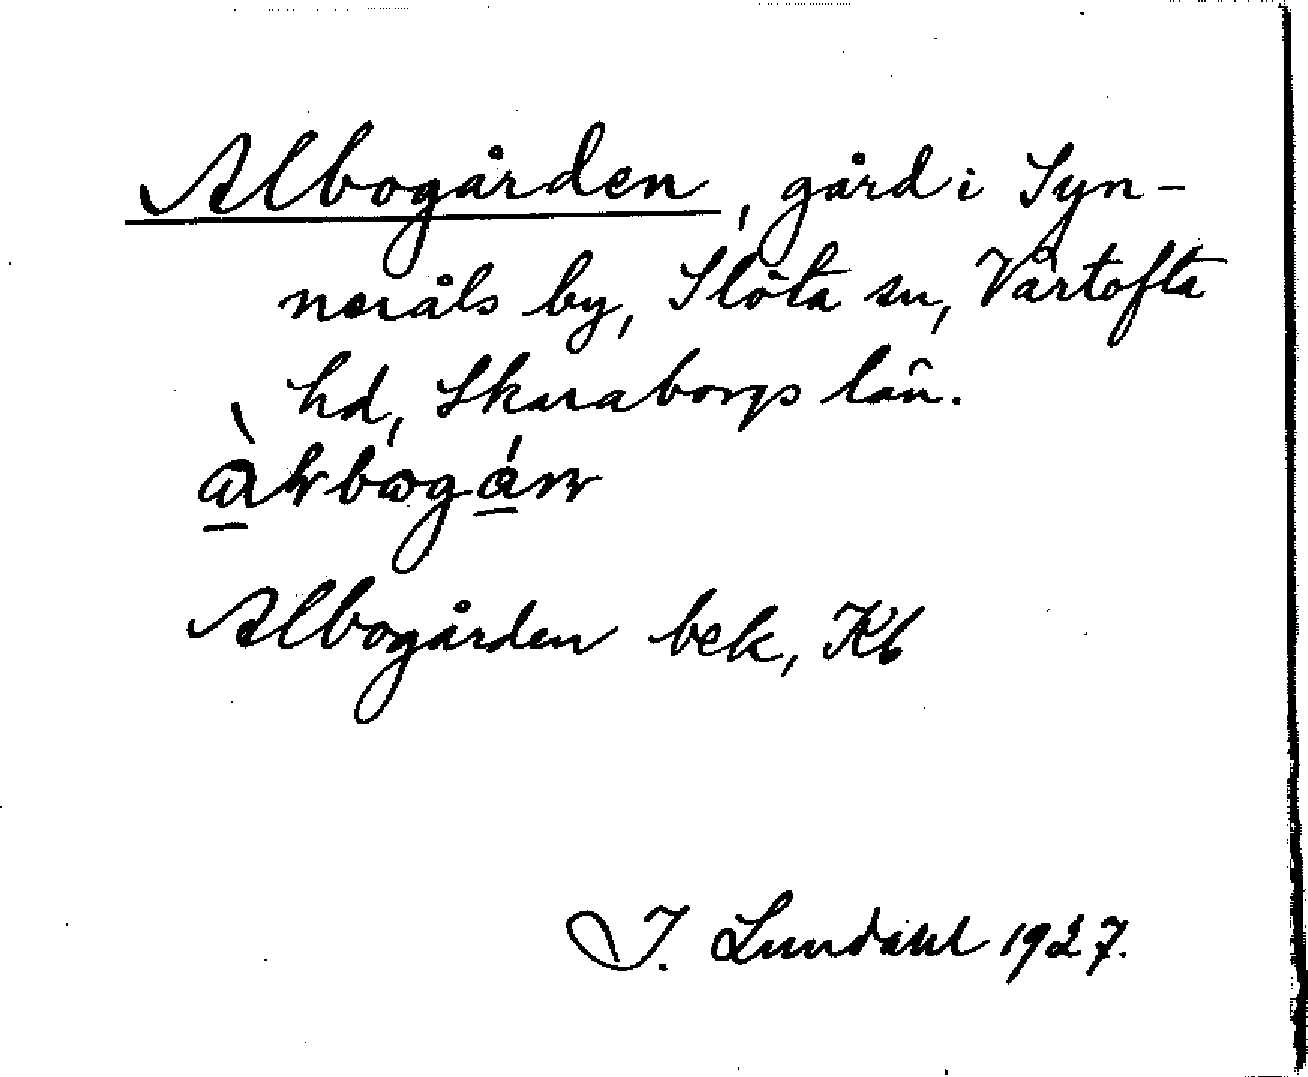 Albogården, gård i Syn-
neråls by, Slöta sn, Vartofta
hd, Skaraborgs län.
Albogården bek, Kb
I. Lundahl 1927.